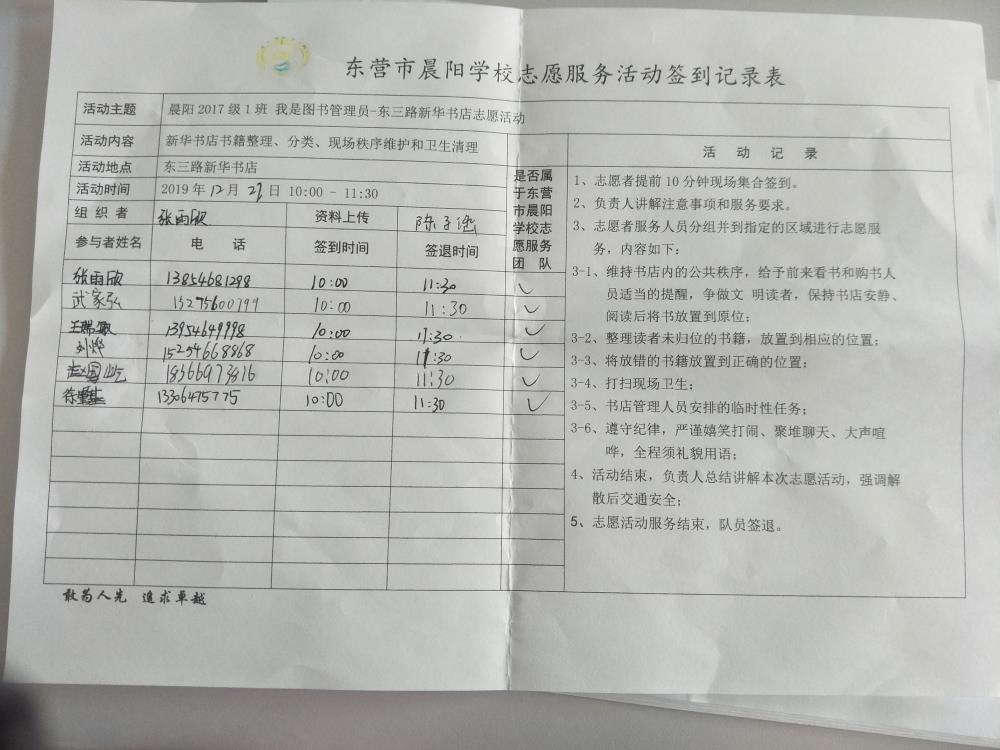 东营市晨阳学校志愿服务活动签到记录表
活动主题 晨阳 2017 级 1 班 我是图书管理员-东三路新华书店志愿活动
活动内容 新华书店书籍整理、分类、现场秩序维护和卫生清理
活动地点 东三路新华书店
活动时间 2019 年 12 月 29 日 10:00 - 11:30
组织者 张雨欣 资料上传 陈子涵
参与者姓名 电 话 签到时间 签退时间
是否属
于东营
市晨阳
学校志
愿服务
团 队
张雨欣 13854681298 10:00 11:30 ✓
武家弘 15275600799 10:00 11:30 ✓
13954649998 10:00 11:30 ✓
刘烨 15254668868 10:00 11:30 ✓
18366973816 10:00 11:30 ✓
13306475775 10:00 11:30 ✓
敢为人先 追求卓越
活 动 记 录
1、志愿者提前 10 分钟现场集合签到。
2、负责人讲解注意事项和服务要求。
3、志愿者服务人员分组并到指定的区域进行志愿服
务，内容如下：
3-1、维持书店内的公共秩序，给予前来看书和购书人
员适当的提醒，争做文 明读者，保持书店安静、
阅读后将书放置到原位；
3-2、整理读者未归位的书籍，放置到相应的位置；
3-3、将放错的书籍放置到正确的位置；
3-4、打扫现场卫生；
3-5、书店管理人员安排的临时性任务；
3-6、遵守纪律，严谨嬉笑打闹、聚堆聊天、大声喧
哗，全程须礼貌用语；
4、活动结束，负责人总结讲解本次志愿活动，强调解
散后交通安全；
5、志愿活动服务结束，队员签退。